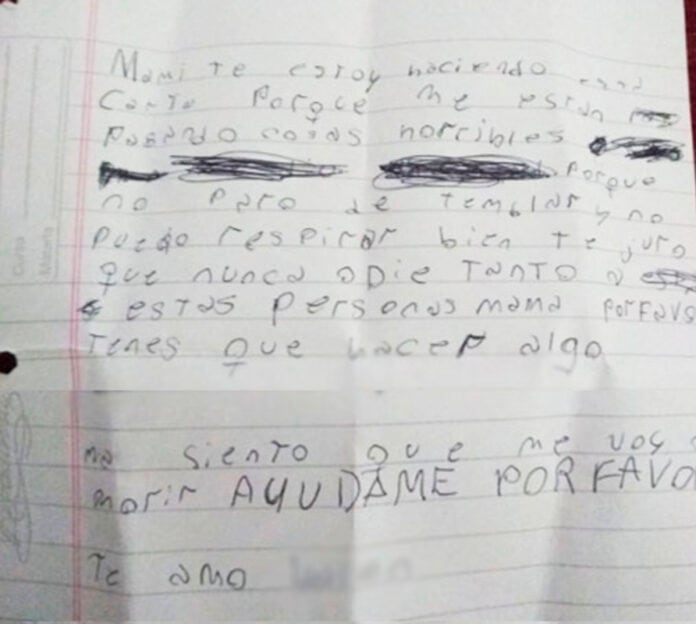 Mami te estoy haciendo esta
Carta Porque me están
Pasando cosas horribles
Porque
no Paro de Temblar y no
Puedo respirar bien te juro
que nunca odie TANTO a
estas Personas mama PorFavo
Tenes que hacer algo
me siento que me voy a
morir AYUDAME POR FAVO
Te amo